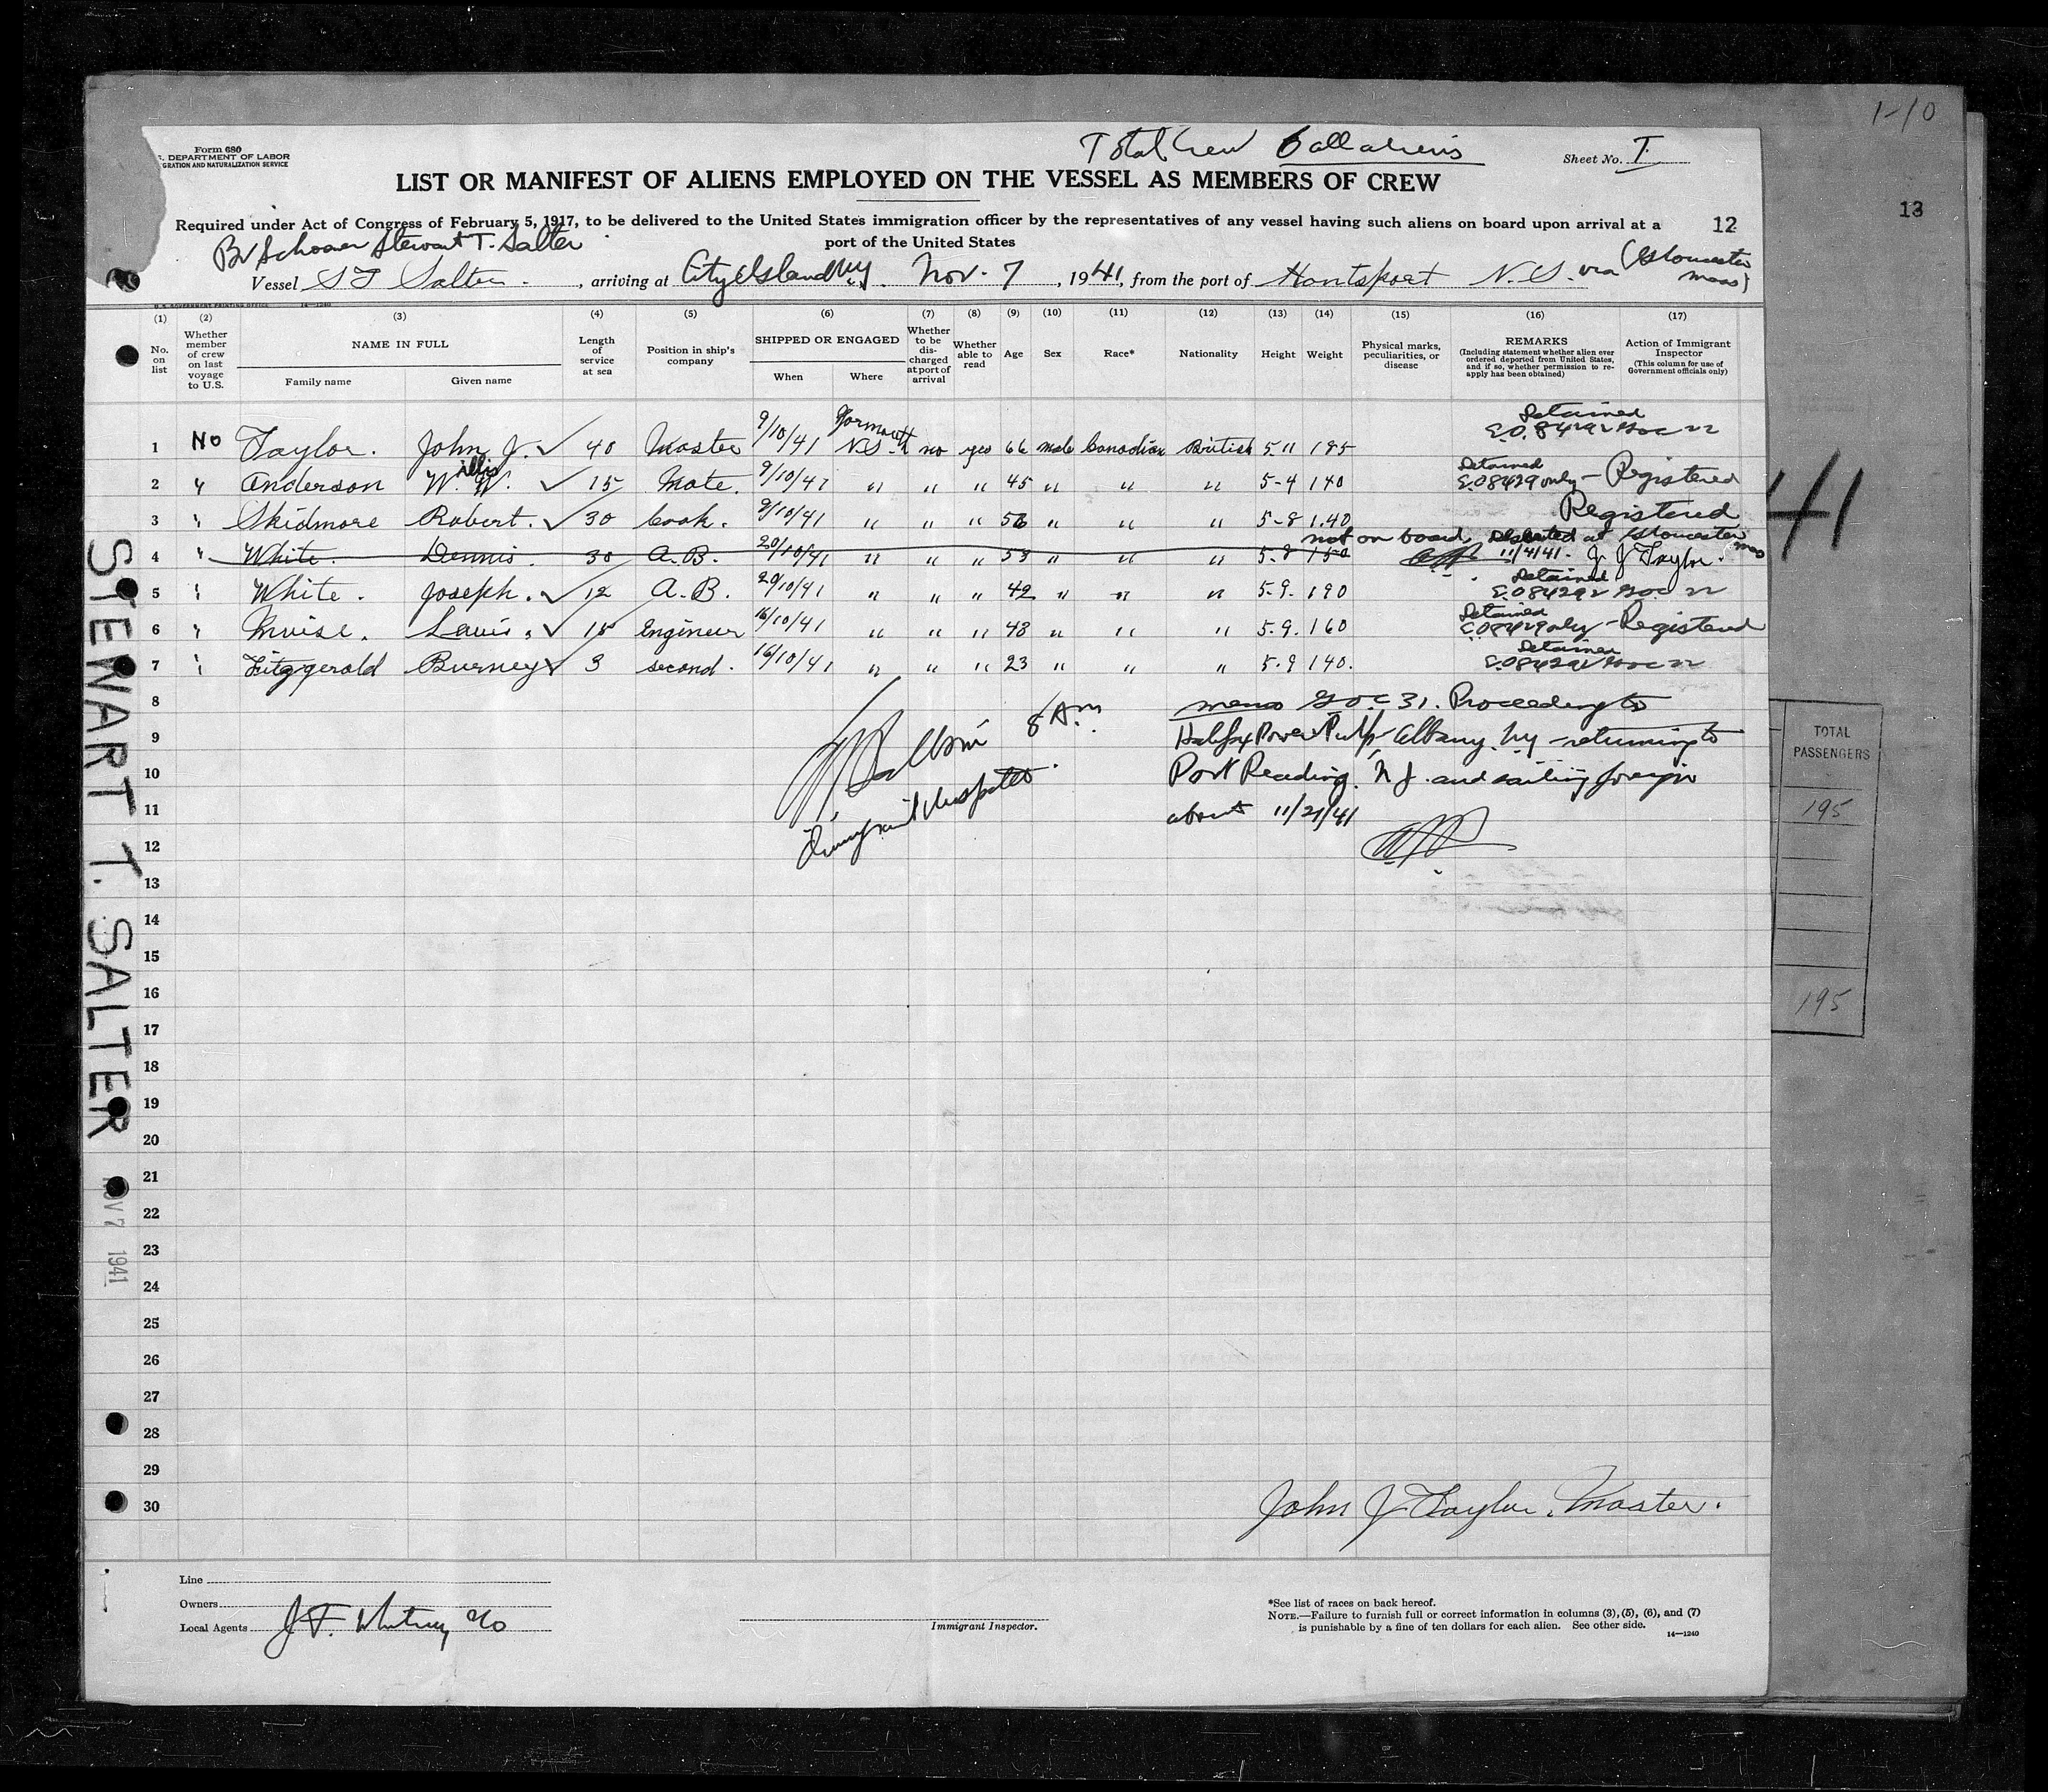 1-10
13
41
Form 680
DEPARTMENT OF LABOR
GRATION AND NATURALIZATION SERVICE
Total Crew 6 all aliens
Sheet No. I
LIST OR MANIFEST OF ALIENS EMPLOYED ON THE VESSEL AS MEMBERS OF CREW
Required under Act of Congress of February 5, 1917, to be delivered to the United States immigration officer by the representatives of any vessel having such aliens on board upon arrival at a
port of the United States
12
Br Schooner Stewart T. Salter
Vessel S T Salter, arriving at City Island N.Y. Nov. 7, 1941, from the port of Hantsport N.S. via (Gloucester Mass)
U.S. GOVERNMENT PRINTING OFFICE 14—1240
(1) (2) (3) (4) (5) (6) (7) (8) (9) (10) (11) (12) (13) (14) (15) (16) (17)
No. on list
Whether member of crew on last voyage to U.S.
NAME IN FULL
Family name Given name
Length of service at sea
Position in ship's company
SHIPPED OR ENGAGED
When Where
Whether to be discharged at port of arrival
Whether able to read
Age
Sex
Race*
Nationality
Height
Weight
Physical marks, peculiarities, or disease
REMARKS
(Including statement whether alien ever ordered deported from United States, and if so, whether permission to reapply has been obtained)
Action of Immigrant Inspector
(This column for use of Government officials only)
1 No Taylor. John J. ✓ 40 Master 9/10/41 Yarmouth N.S. no yes 66 male Canadian British 5 11 185 Detained E.O. 8429
2 " Anderson W.illis W. ✓ 15 Mate. 9/10/41 " " " 45 " " " 5-4 140 Detained E.O 8429 only - Registered
3 " Skidmore Robert. ✓ 30 Cook. 9/10/41 " " " 56 " " " 5-8 1.40 Registered
4 " White. Dennis. 30 A.B. 20/10/41 " " " 58 " " " 5-8 150 not on board, Deserted at Gloucester Mass 11/4/41. J J Taylor.
5 " White. Joseph. ✓ 12 A.B. 20/10/41 " " " 42 " " " 5-9. 190 Detained E.O 8429
6 " Muise. Louis. ✓ 15 Engineer 16/10/41 " " " 43 " " " 5.9. 160 Detained E.O 8429 only - Registered
7 " Fitzgerald Burney ✓ 3 second. 16/10/41 " " " 23 " " " 5.9 140. Detained E.O 8429
8
9
10
11
12
13
14
15
16
17
18
19
20
21
22
23
24
25
26
27
28
29
30
8 Am
Immigrant Inspector
memo G.O.C 31. Proceeding to
Halifax Power Pulp Albany. N.Y - returning to
Port Reading. N J. and sailing foreign
about 11/21/41
STEWART T. SALTER
NOV 7 1941
TOTAL
PASSENGERS
195
195
John J Taylor. Master.
Line
Owners
Local Agents J F. Whitney & Co
Immigrant Inspector.
*See list of races on back hereof.
NOTE.—Failure to furnish full or correct information in columns (3), (5), (6), and (7)
is punishable by a fine of ten dollars for each alien. See other side.
14—1240